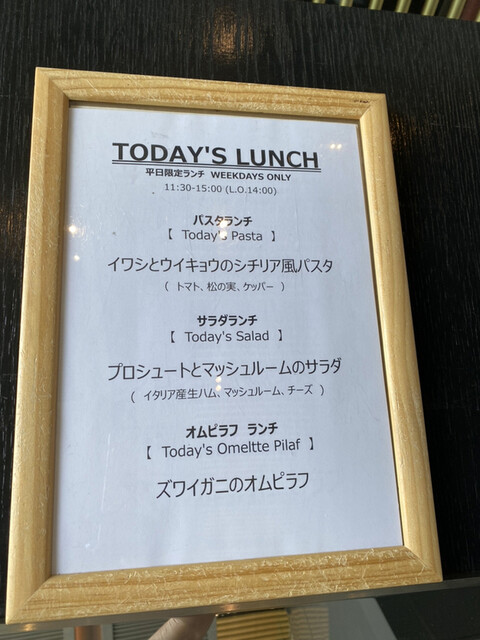 TODAY'S LUNCH
平日限定ランチ WEEKDAYS ONLY
11:30-15:00 (L.O.14:00)
パスタランチ
【 Today's Pasta 】
イワシとウイキョウのシチリア風パスタ
( トマト、松の実、ケッパー )
サラダランチ
【 Today's Salad 】
プロシュートとマッシュルームのサラダ
( イタリア産生ハム、マッシュルーム、チーズ )
オムピラフ ランチ
【 Today's Omeltte Pilaf 】
ズワイガニのオムピラフ